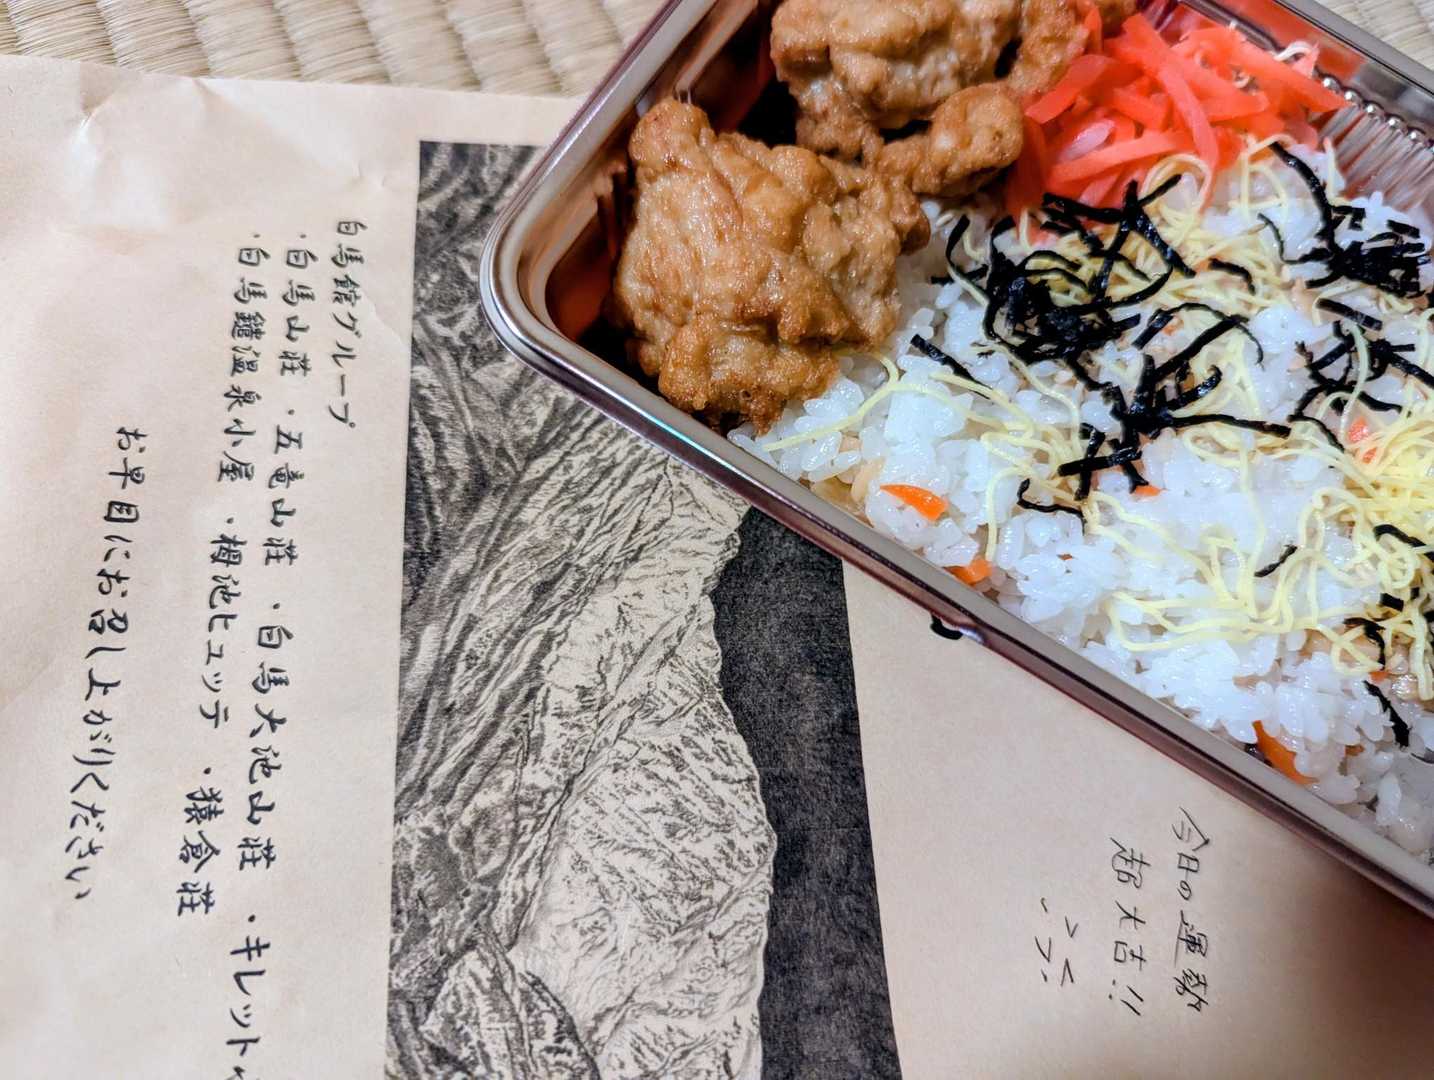 今日の運勢
超大吉!!
白馬館グループ
・白馬山荘 ・五竜山荘 ・白馬大池山荘 ・キレット
・白馬鑓温泉小屋 ・栂池ヒュッテ ・猿倉荘
お早目にお召し上がりください